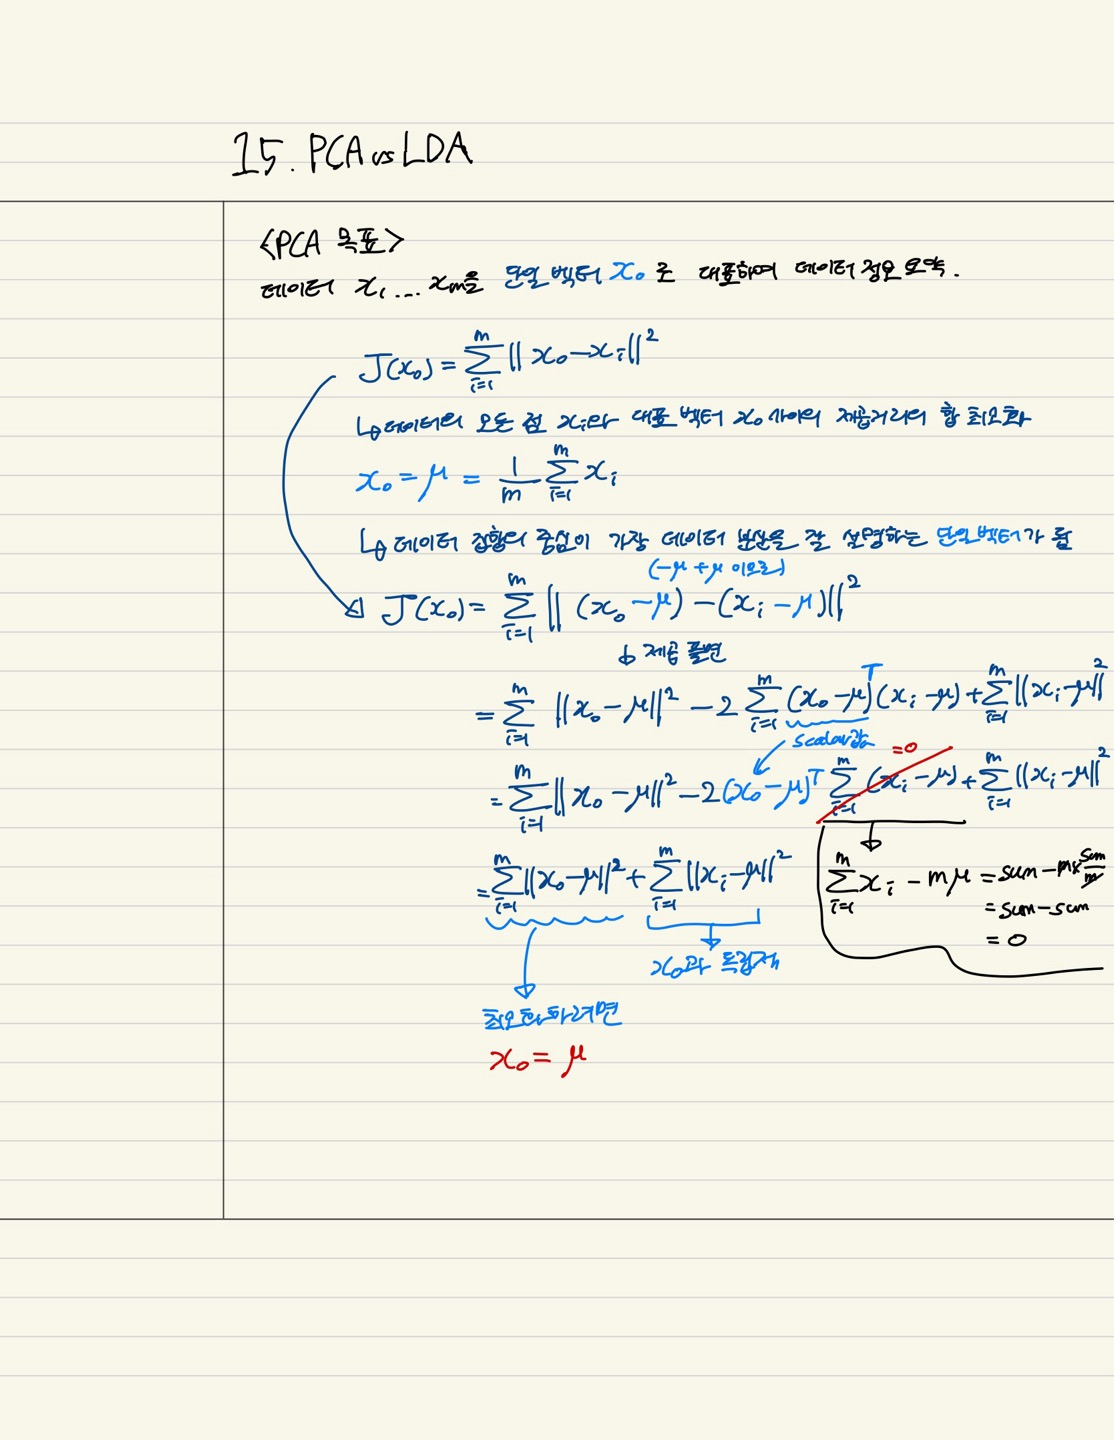 15. PCA vs LDA
<PCA 목표>
데이터 x₁ ... xₘ을 단일 벡터 x₀로 대표하여 데이터 정보 요약.
J(x₀) = Σ_{i=1}^{m} || x₀ - xᵢ ||²
↳ 데이터의 모든 점 xᵢ와 대표 벡터 x₀ 사이의 제곱거리의 합 최소화
x₀ = μ = 1/m Σ_{i=1}^{m} xᵢ
↳ 데이터 집합의 중심이 가장 데이터 분산을 잘 설명하는 단일벡터가 됨
(-μ + μ 이므로)
J(x₀) = Σ_{i=1}^{m} || (x₀ - μ) - (xᵢ - μ) ||²
↓ 제곱 풀면
= Σ_{i=1}^{m} || x₀ - μ ||² - 2 Σ_{i=1}^{m} (x₀ - μ)ᵀ (xᵢ - μ) + Σ_{i=1}^{m} || xᵢ - μ ||²
scalar값
= 0
= Σ_{i=1}^{m} || x₀ - μ ||² - 2 (x₀ - μ)ᵀ Σ_{i=1}^{m} (xᵢ - μ) + Σ_{i=1}^{m} || xᵢ - μ ||²
= Σ_{i=1}^{m} || x₀ - μ ||² + Σ_{i=1}^{m} || xᵢ - μ ||²
Σ_{i=1}^{m} xᵢ - mμ = sum - m × sum/m
= sum - sum
= 0
x₀과 독립적
최소화하려면
x₀ = μ